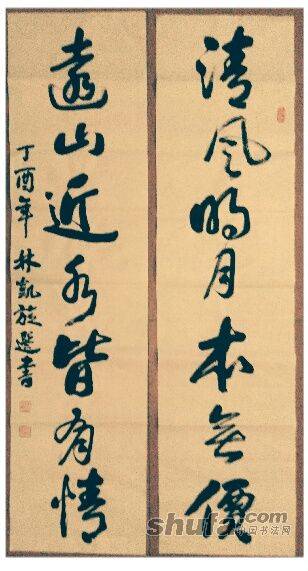 清風明月本無價
遠山近水皆有情
丁酉年 林凱旋選書
shufa.com
中国书法网